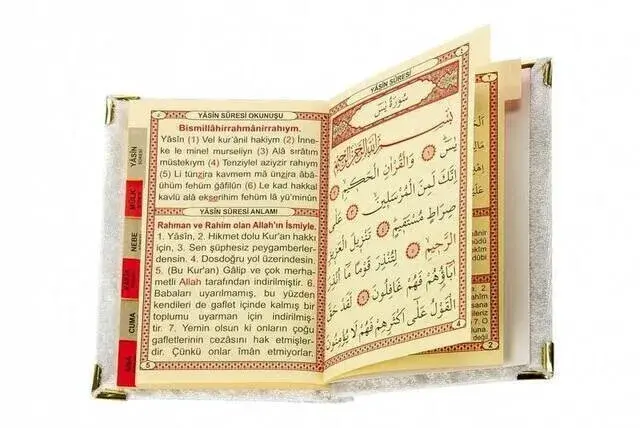 YÂSİN
SÛRESİ
MÜLK
NEBE
CUMA
YÂSÎN SÛRESİ OKUNUŞU
Bismillâhirrahmânirrahıym.
Yâsîn (1) Vel kur'ânil hakiym (2) İnne-
ke le minel murseliyn (3) Alâ sırâtım
müstekıym (4) Tenziylel aziyzir rahıym
(5) Li tünzira kavmem mâ ünzira âbâ-
ühüm fehüm ğâfilûn (6) Le kad hakkal
kavlü alâ ekserihim fehüm lâ yü'minûn
YÂSÎN SÛRESİ ANLAMI
Rahman ve Rahim olan Allah'ın İsmiyle.
1. Yâsîn, 2. Hikmet dolu Kur'an hakkı
için, 3. Sen şüphesiz peygamberler-
densin. 4. Dosdoğru yol üzerindesin.
5. (Bu Kur'an) Gâlip ve çok merha-
metli Allah tarafından indirilmiştir. 6.
Babaları uyarılmamış, bu yüzden
kendileri de gaflet içinde kalmış bir
toplumu uyarman için indirilmiş-
tir. 7. Yemin olsun ki onların çoğu
gafletlerinin cezasını hak etmişler-
dir. Çünkü onlar îman etmiyorlar.
5
YÂSÎN SÛRESİ
سُورَةُ يٰسٓ
يٰسٓ ۝ وَالْقُرْاٰنِ الْحَكِيمِ ۝
اِنَّكَ لَمِنَ الْمُرْسَلِينَ ۝ عَلٰى
صِرَاطٍ مُسْتَقِيمٍ ۝ تَنْزِيلَ الْعَزِيزِ
الرَّحِيمِ ۝ لِتُنْذِرَ قَوْمًا مَٓا اُنْذِرَ
اٰبَٓاؤُهُمْ فَهُمْ غَافِلُونَ ۝ لَقَدْ حَقَّ
الْقَوْلُ عَلٰٓى اَكْثَرِهِمْ فَهُمْ لَا يُؤْمِنُونَ
4
2